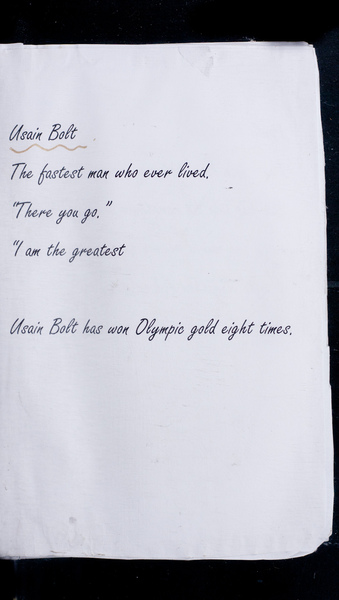 Usain Bolt
The fastest man who ever lived.
"There you go."
"I am the greatest
Usain Bolt has won Olympic gold eight times.